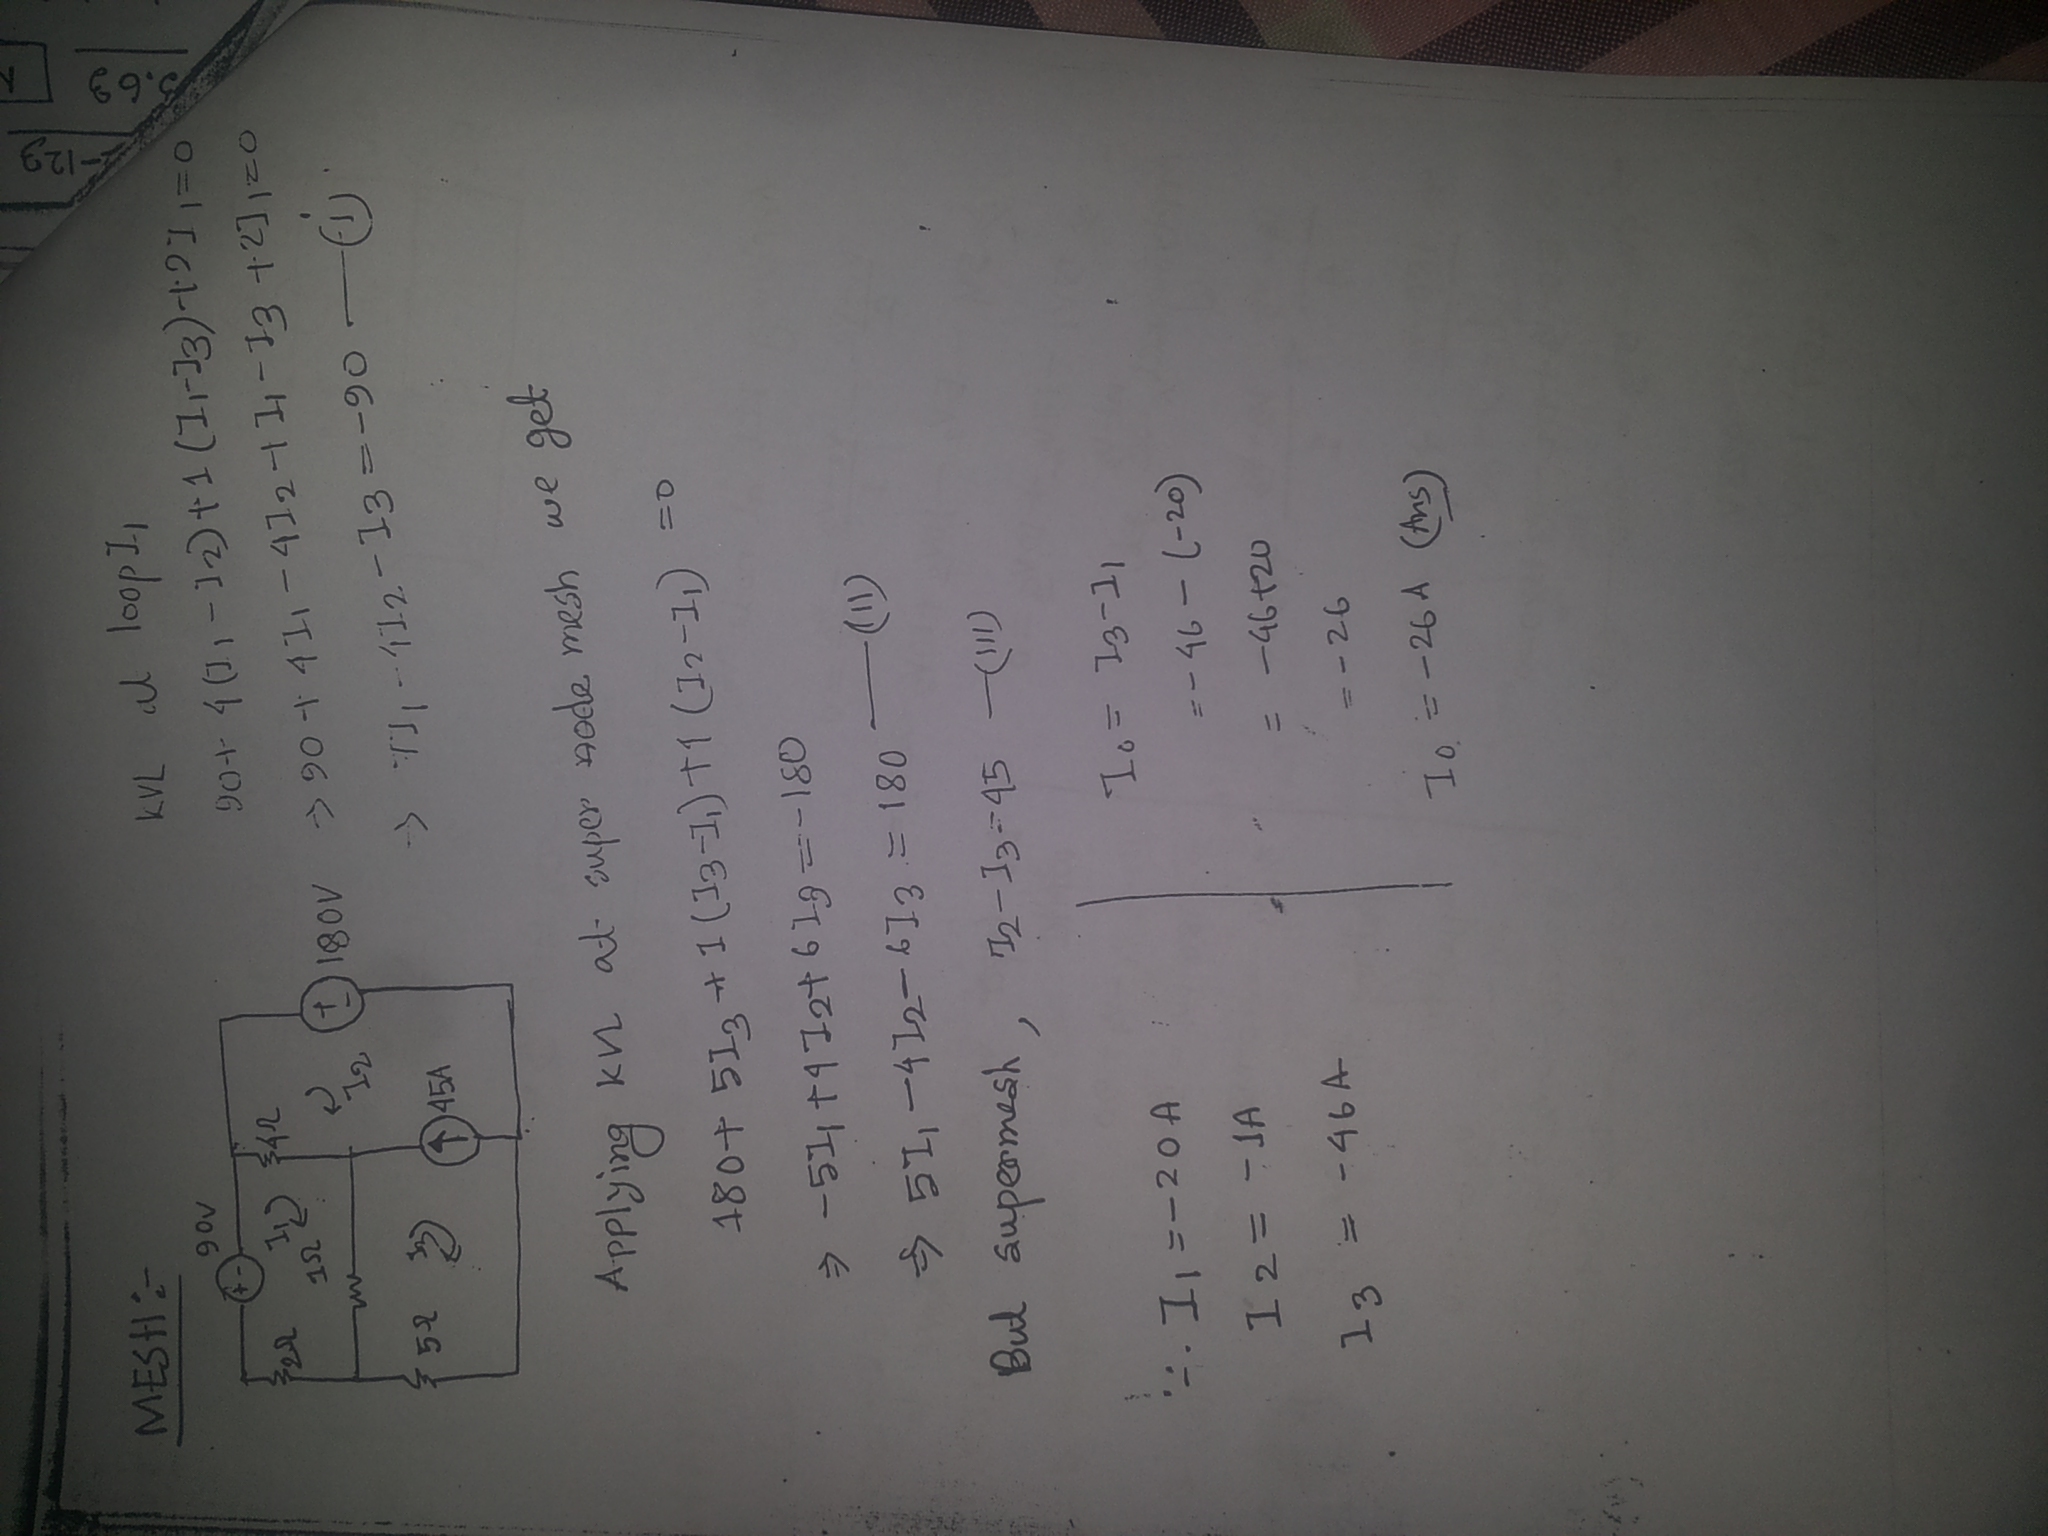 MESH :-
90V
+ -
2Ω
I1
4Ω
1Ω
I2
+
-
180V
5Ω
I3
45A
KVL at loop I1
90 + 4 (I1 - I2) + 1 (I1 - I3) + 2I1 = 0
→ 90 + 4I1 - 4I2 + I1 - I3 + 2I1 = 0
→ 7I1 - 4I2 - I3 = -90 — (i)
Applying kvl at super node mesh we get
180 + 5I3 + 1 (I3 - I1) + 4 (I2 - I1) = 0
⇒ -5I1 + 4I2 + 6I3 = -180
⇒ 5I1 - 4I2 - 6I3 = 180 — (II)
But supermesh, I2 - I3 = 45 — (III)
∴ I1 = -20 A
I2 = -1A
I3 = -46 A
I0 = I3 - I1
= -46 - (-20)
= -46 + 20
= -26
I0 = -26 A (Ans)
-129
3.63